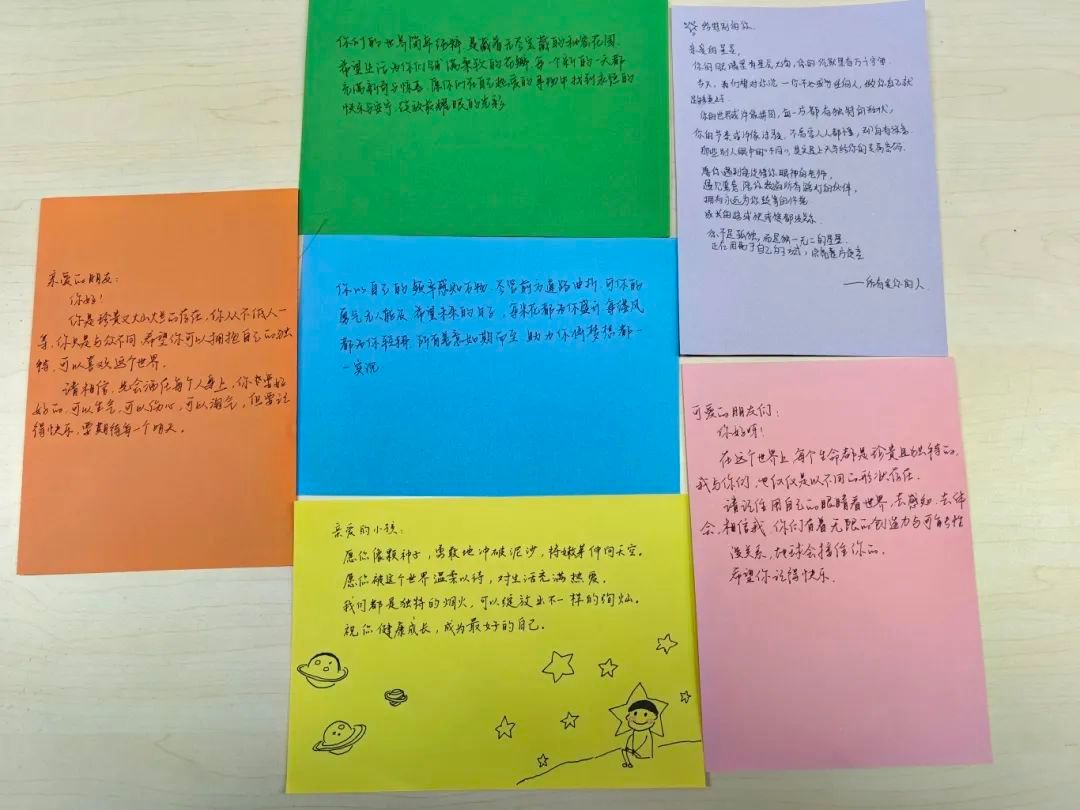 你们的世界简单纯粹,是藏着无尽宝藏的秘密花园.
希望生活为你们铺满柔软的花瓣,每一个新的一天都
充满新奇与惊喜.愿你们在自己热爱的事物中找到永恒的
快乐与安宁,绽放最耀眼的光彩
给特别的你.
亲爱的星星,
你的眼睛里有星辰大海,你的
今天,我们想对你说一你不必成为任何人,做你自己就
足够美好.
你的世界或许像拼图,每一片都有独特的形状,
你的节奏或许像诗歌,不需要人人都懂,却自有深意.
那些别人眼中的"不同",其实是上天写给你的
愿你遇到能读懂你眼神的老师,
遇见愿意陪你
拥有永远为你
成长的路或快或慢都没关系.
你不是孤独,而是独一无二的星星.
正在用属于自己的方式,
——所有爱你的人.
亲爱的朋友:
你好!
你是珍贵又灿烂的存在,你从不低人一
等,你只是与众不同.希望你可以拥抱自己的独
特,可以喜欢这个世界.
请相信,光会洒在每个人身上,你也要好
好的.可以生气,可以伤心,可以淘气,但要记
得快乐,要期待每一个明天.
你以自己的频率感知万物.尽管前方道路曲折,可你的
勇气无人能及.希望未来的日子,每朵花都为你盛开,每缕风
都为你轻拂,所有美好如期而至,助力你将梦想都一
一实现
可爱的朋友们:
你好呀!
在这个世界上,每个生命都是珍贵且独特的.
我与你们,也仅仅是以不同的形状存在.
请记住用自己的眼睛看世界,去感知,去体
会,相信我,你们有着无限的创造力与可能性
没关系,地球会接住你的.
希望你记得快乐.
亲爱的小孩:
愿你像颗种子,勇敢地冲破泥沙,将嫩芽伸向天空.
愿你被这个世界温柔以待,对生活充满热爱.
我们都是独特的烟火,可以绽放出不一样的绚灿.
祝你健康成长,成为最好的自己.